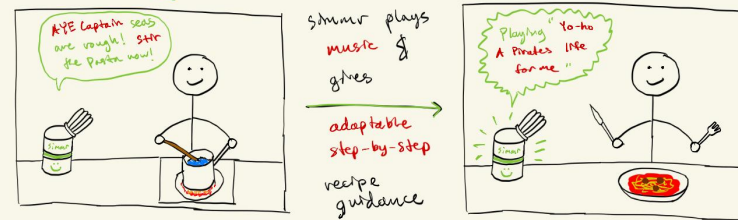 AYE Captain seas
are rough! Stir
the Pasta now!
simmr
simmr plays
music &
gives
adaptable
step-by-step
recipe
guidance
Playing " Yo-ho
A Pirates life
for me "
simmr